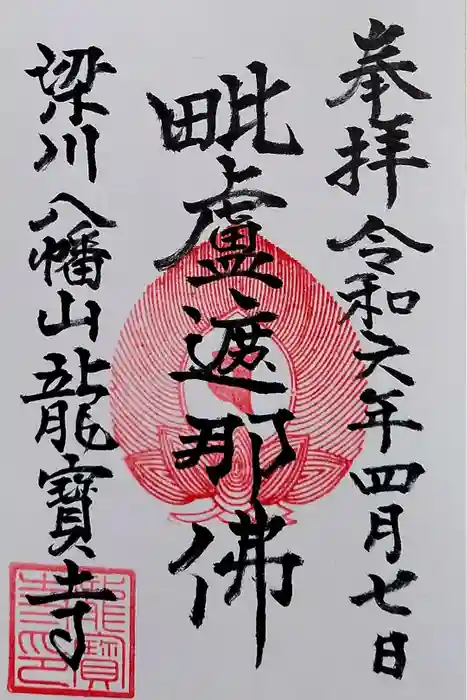 奉拝 令和六年四月七日
毗盧遮那佛
梁川八幡山龍寶寺
龍寶
寺印